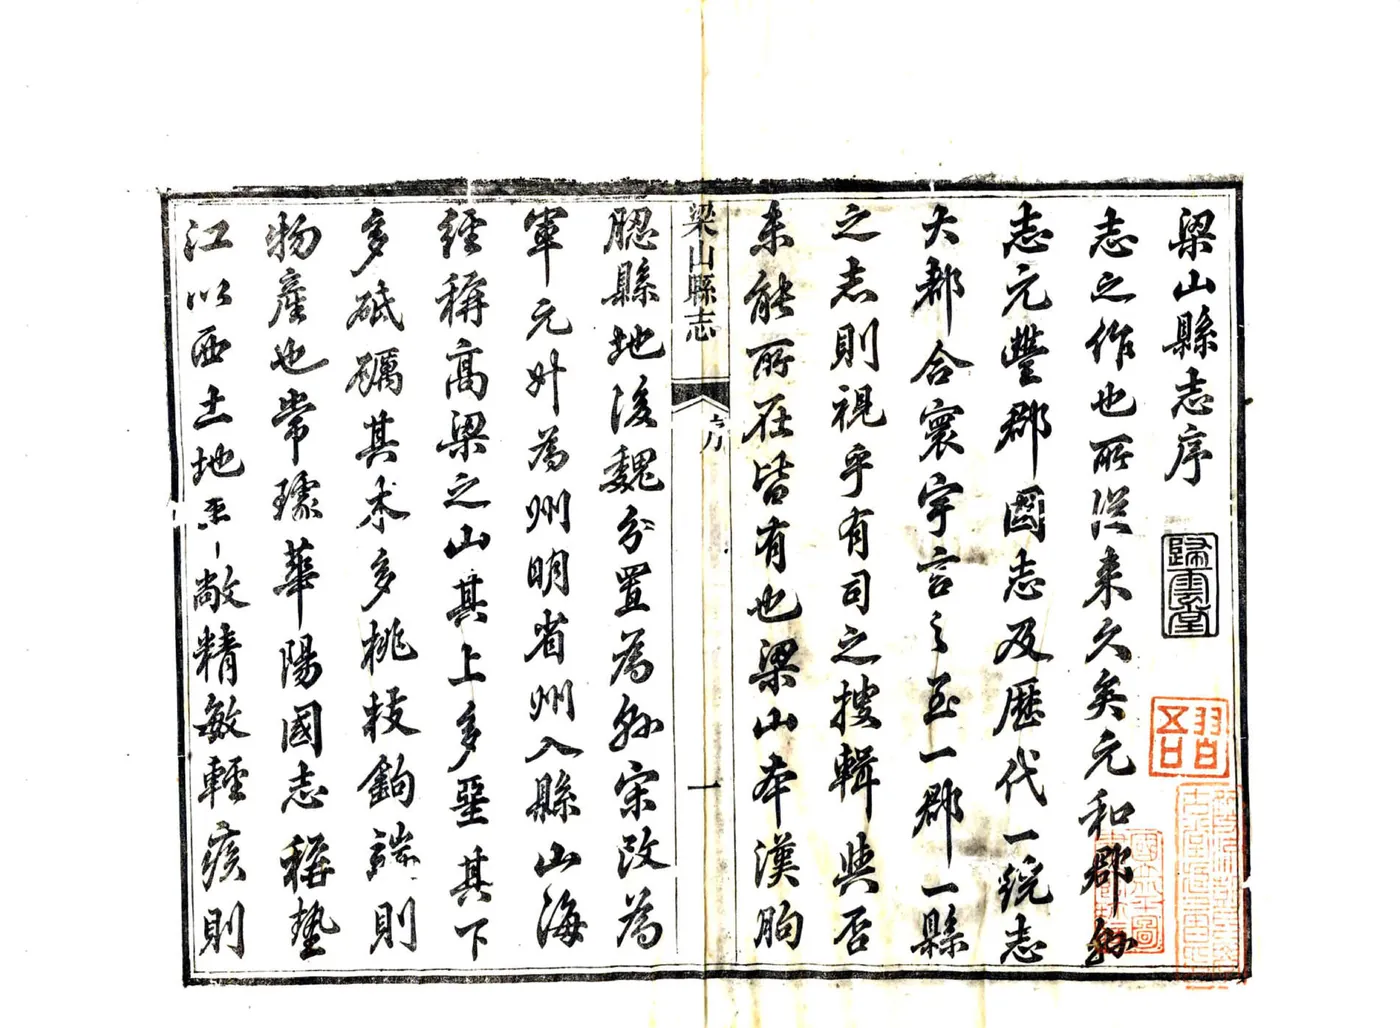 梁山縣志序
歸雲堂
志之作也所從來久矣元和郡縣
志元豐郡國志及歷代一統志
大都合寰宇言之至一郡一縣
之志則視乎有司之搜輯與否
未能所在皆有也梁山本漢朐
梁山縣志
序
一
䏰縣地後魏分置為縣宋改為
軍元升為州明省州入縣山海
經稱高梁之山其上多堊其下
多砥礪其木多桃枝鉤端則
物產也常璩華陽國志稱墊
江以西土地平敞精敏輕疾則